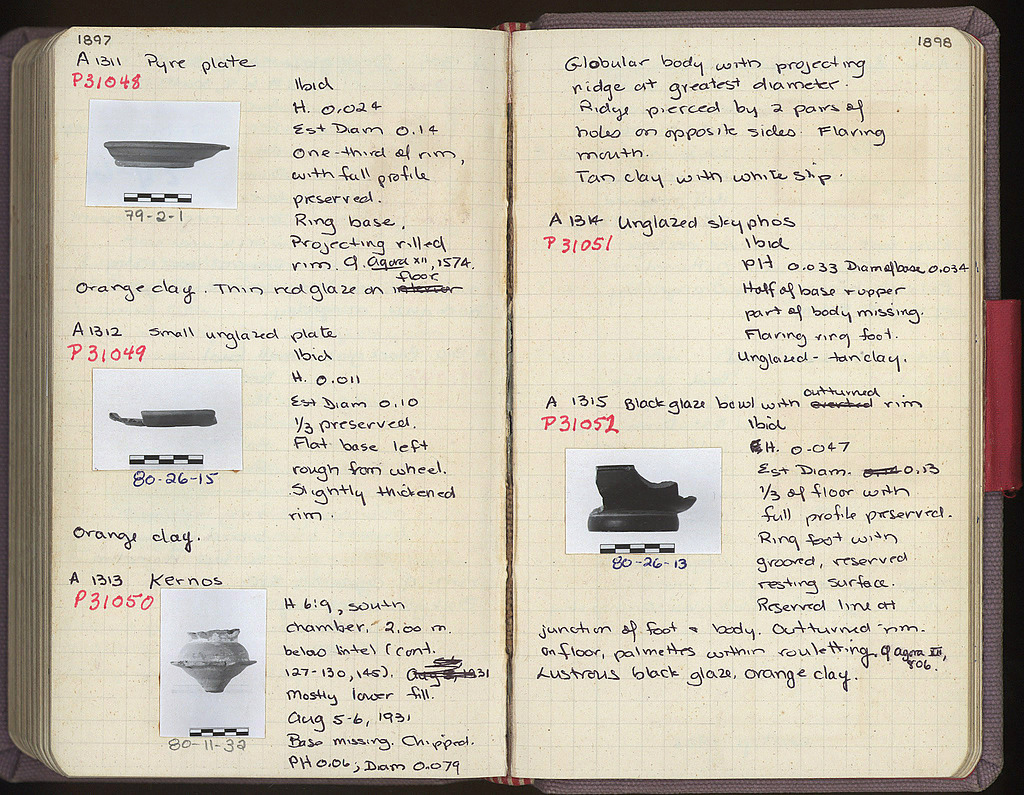 1897
A 1311 Pyre plate
P31048
Ibid
H. 0.024
Est Diam 0.14
One-third of rim,
with full profile
preserved.
Ring base.
Projecting rilled
rim. Cf. Agora XII, 1574.
floor
Orange clay. Thin red glaze on interior
79-2-1
A 1312 Small unglazed plate
P31049
Ibid
H. 0.011
Est Diam 0.10
1/3 preserved.
Flat base left
rough from wheel.
Slightly thickened
rim.
80-26-15
Orange clay.
A 1313 Kernos
P31050
H 6:9, south
chamber, 2.00 m.
below lintel (cont.
127-130, 145). 1931
Mostly lower fill.
Aug 5-6, 1931
Base missing. Chipped.
PH 0.06; Diam 0.079
80-11-32
1898
Globular body with projecting
ridge at greatest diameter.
Ridge pierced by 2 pairs of
holes on opposite sides. Flaring
mouth.
Tan clay with white slip.
A 1314 Unglazed skyphos
P 31051
Ibid
PH 0.033 Diam of base 0.034
Half of base + upper
part of body missing.
Flaring ring foot.
Unglazed - tan clay.
outturned
A 1315 Black glaze bowl with everted rim
P31052
Ibid
H. 0.047
Est Diam. 0.13
1/3 of floor with
full profile preserved.
Ring foot with
grooved, reserved
resting surface.
Reserved line at
junction of foot + body. Outturned rim.
On floor, palmettes within rouletting. Cf Agora XII,
806.
Lustrous black glaze, orange clay.
80-26-13